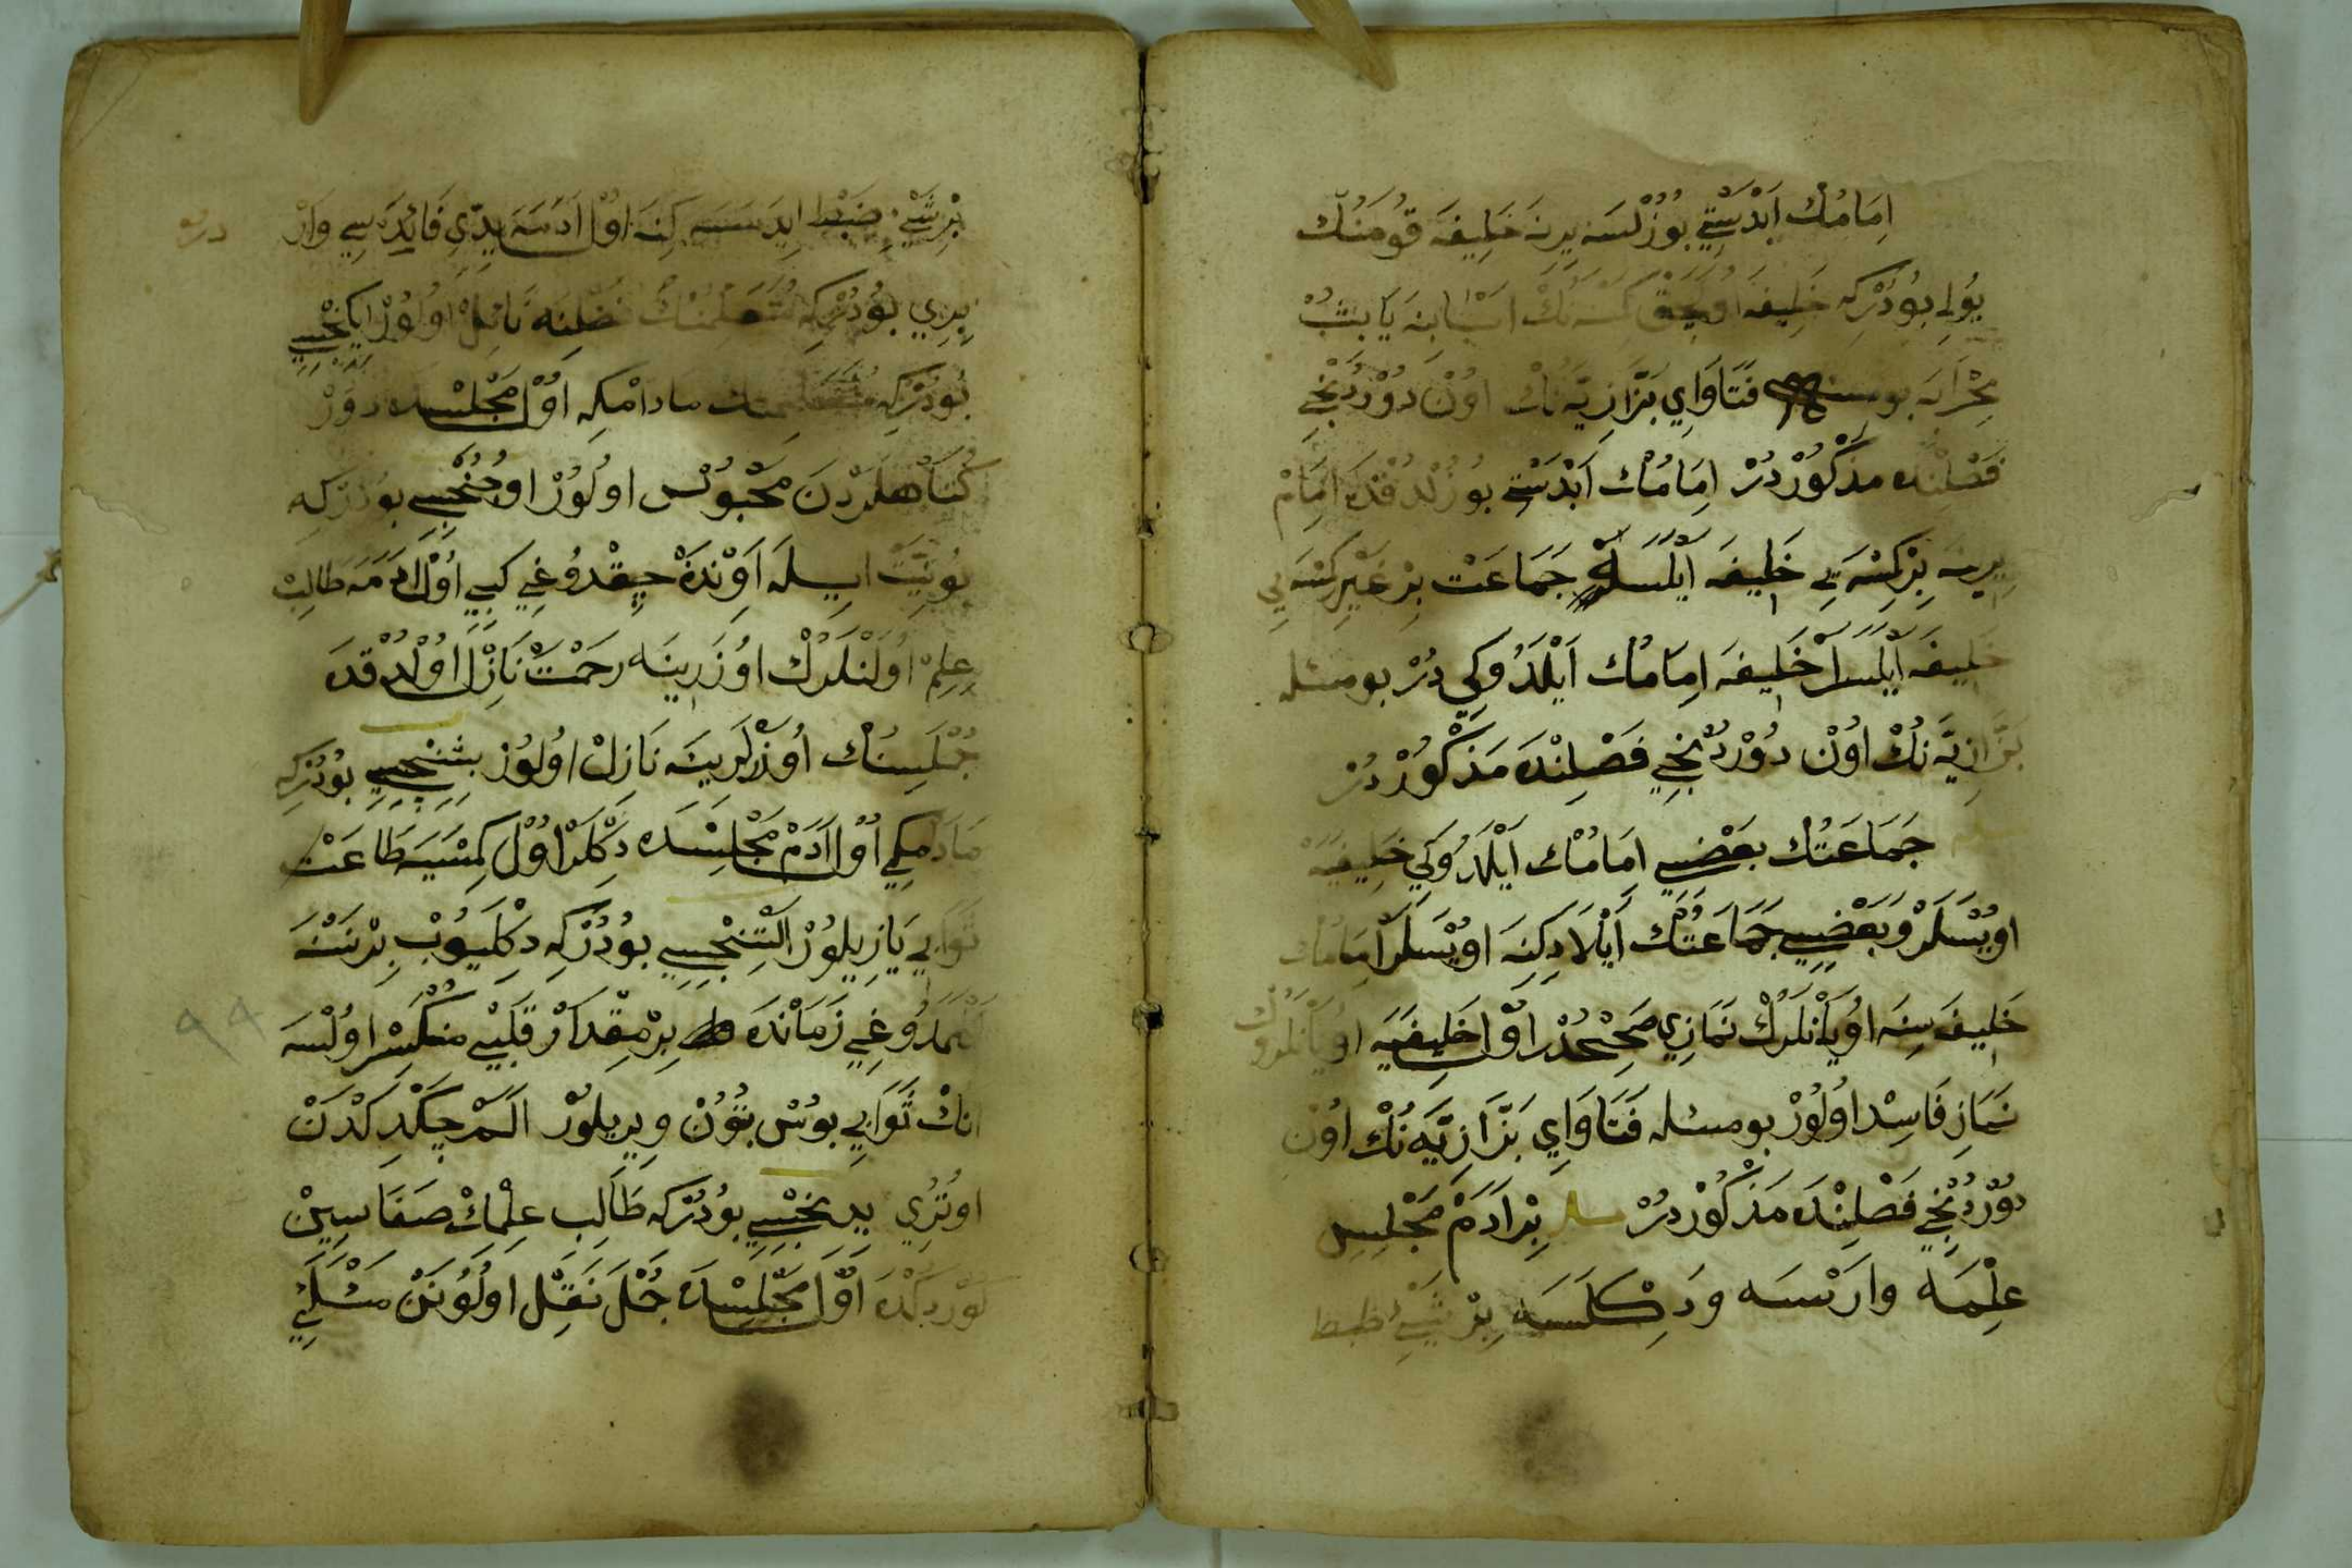 اِمَامُكْ اَبْدَسْتِي بُوزُلْسَه يِرِنَه خَلِيفَه قُومَنُكْ
يُولِي بُودُرْكِه خَلِيفَه اولجق كمسنه نك اَثْوَابِنَه يَابِشُبْ
مِحْرَابَه بو مسئله فَتَاوَايِ بَزَّازِيَّه نُكْ اُونْ دُورْدُنْجِي
فَصْلِنْدَه مَذْكُورْدُرْ اِمَامُكْ اَبْدَسْتِي بُوزُلْدُقْدَه اِمَامْ
يِرِينَه بِرْ كِسْنَه يِي خَلِيفَه اَيْلَسَه جَمَاعَتْ بِرْ غَيْرِ كِسْنَه يِي
خَلِيفَه اَيْلَسَلَرْ خَلِيفَه اِمَامُكْ اَيْلَدُوكِي دُرْ بو مسئله
بَزَّازِيَّه نُكْ اُونْ دُورْدُنْجِي فَصْلِنْدَه مَذْكُورْدُرْ
جَمَاعَتُكْ بَعْضِيسِي اِمَامُكْ اَيْلَدُوكِي خَلِيفَيَه
اُويْسَلَرْ وَبَعْضِيسِي جَمَاعَتُكْ اَيْلَادِكِنَه اُويْسَلَرْ اِمَامُكْ
خَلِيفَه سِنَه اُويَانْلَرُكْ نَمَازِي صَحِيحْدُرْ اُوْل خَلِيفَيَه اُويَانْلَرُكْ
نَمَازِ فَاسِدْ اُولُورْ بو مسئله فَتَاوَايِ بَزَّازِيَّه نُكْ اُونْ
دُورْدُنْجِي فَصْلِنْدَه مَذْكُورْدُرْ مسئله بِرْ اَدَمْ مَجْلِسِ
عِلْمَه وارْسَه وَدِكْلَسَه بِرْ شَيْءْ ضبط
بِرْ شَيْءْ ضَبْط اِيدَمَسَه كِنَه اُوْل اَدَمَه يِدِي فَائِدَه سِي وَارْدر
بِرِي بُودُرْكِه مُتَعَلِّمِنُكْ فَضْلِنَه نَائِلْ اُولُورْ اِيكِنْجِيسِي
بُودُرْكِه مَادَامْكِه اُوْل مَجْلِسْدَه دُورُرْ
كُنَاهْلَرْدَنْ مَحْبُوسْ اُولُورْ اُوچُنْجِيسِي بُودُرْكِه
بُو نِيَّتْ اِيلَه اَوِنْدَنْ چِيقْدُوغِي كِبِي اُوْل اَدَمَه طَالِبْ
عِلِمْ اُولَنْلَرُكْ اُوزَرِينَه رَحْمَتْ نَازِلْ اُولْدُقْدَه
جُمْلَسِنُكْ اُوزَرْلَرِينَه نَازِلْ اُولُورْ بِشِنْجِيسِي بُودُرْكِه
مَادَامْكِي اُوْل اَدَمْ مَجْلِسْدَه دِكْلَرْ اُوْل كِمْسَيَه طَاعَتْ
ثَوَابِي يَازِيلُورْ اَلْتِنْجِيسِي بُودُرْكِه دِكْلَيُوبْ بِرْ نَسْنَه
دُوغِي زَمَانْدَه بِرْ مِقْدَارْ قَلْبِي مُنْكَسِرْ اُولْسَه
اَنُكْ ثَوَابِي بُوسْ بُتُونْ وِيرِيلُورْ اَلَمْ چِكْدِكْدَنْ
اُوتُرِي يِدِنْجِيسِي بُودُرْكِه طَالِبِ عِلْمُكْ صَفَاسِينْ
كُورْدِكْدَه اُوْل مَجْلِسْدَه حَلْ نَقِلْ اُولُونَنْ مَسْئَلَيِ